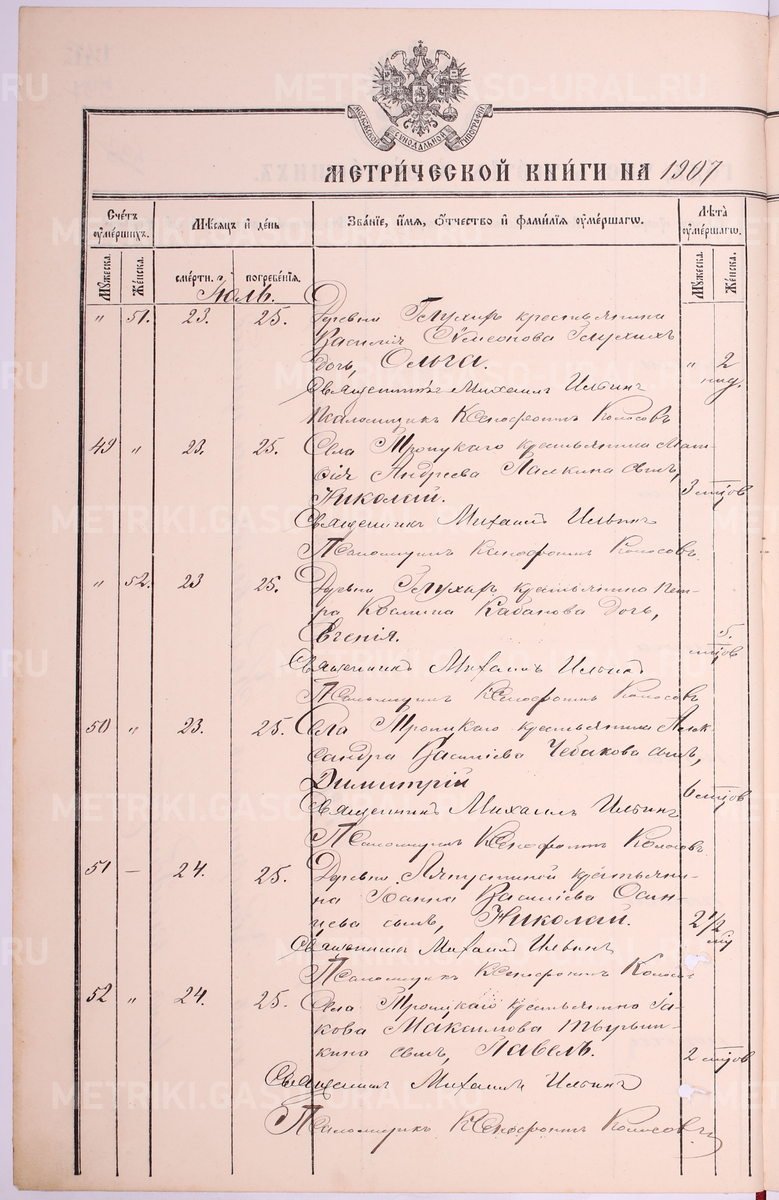 МЕТРИЧЕСКОЙ КНИГИ НА 1907
Счетъ умершихъ.
Мѣсяцъ и день
Званіе, имя, отчество и фамилія умершаго.
Лѣта умершаго.
Мужеска.
Женска.
смерти.
погребенія.
Мужеска.
Женска.
Іюль.
" 51. 23. 25. Деревни Глухихъ крестьянина
Василія Симеонова Глухихъ
дочь, Ольга. " 2 нид.
Священникъ Михаилъ Ильинъ
Псаломщикъ Ксенофонтъ Колосовъ
49 " 23. 25. Села Троицкаго крестьянина Мат-
ѳія Андреева сынъ,
Николай. 3 мѣсяцов
Священникъ Михаилъ Ильинъ
Псаломщикъ Ксенофонтъ Колосовъ
" 52. 23 25. Деревни Глухихъ крестьянина Пет-
ра Козмина Кабанова дочь,
Евгенія. 5. мѣсяцов
Священникъ Михаилъ Ильинъ
Псаломщикъ Ксенофонтъ Колосовъ
50 " 23. 25. Села Троицкаго крестьянина Алек-
сандра Василіева Чебакова сынъ,
Димитрій 6 мѣсяцов
Священникъ Михаилъ Ильинъ
Псаломщикъ Ксенофонтъ Колосовъ
51 — 24. 25. Деревни крестьяни-
на Іоанна Василіева Осин-
цева сынъ, Николай. 2 1/2
Священникъ Михаилъ Ильинъ
Псаломщикъ Ксенофонтъ Колосовъ
52 " 24. 25. Села Троицкаго крестьянина Іа-
кова Максимова
сынъ, Павелъ. 2 мѣсяцов
Священникъ Михаилъ Ильинъ
Псаломщикъ Ксенофонтъ Колосовъ
METRIKI.GASO-URAL.RU